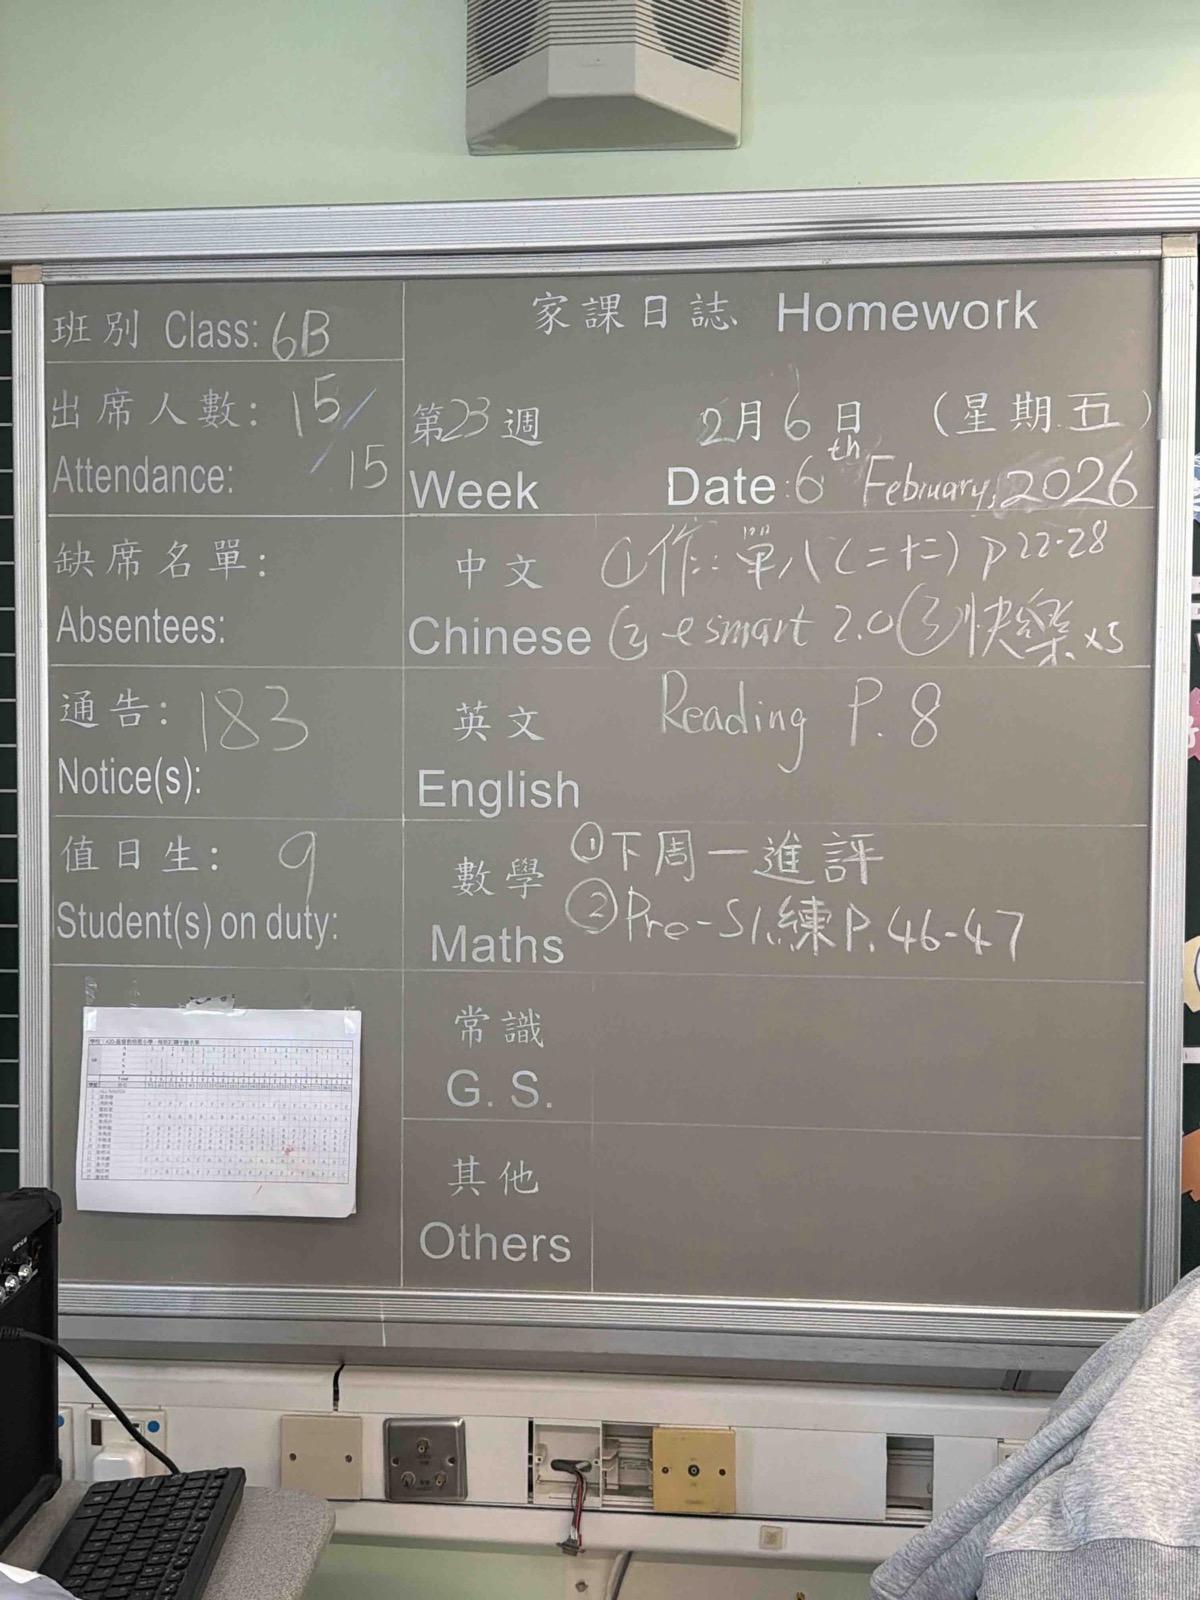 家課日誌 Homework
班別 Class: 6B
出席人數: 15/15
Attendance:
第23週 2月6日 (星期五)
Week Date: 6th February, 2026
缺席名單:
Absentees:
中文 ①作: 單八(二十二) P22-28
Chinese ② e smart 2.0 ③快樂 x5
通告: 183
Notice(s):
英文 Reading P. 8
English
值日生: 9
Student(s) on duty:
數學 ①下周一進評
Maths ②Pre-S1練P. 46-47
常識
G. S.
其他
Others
Total